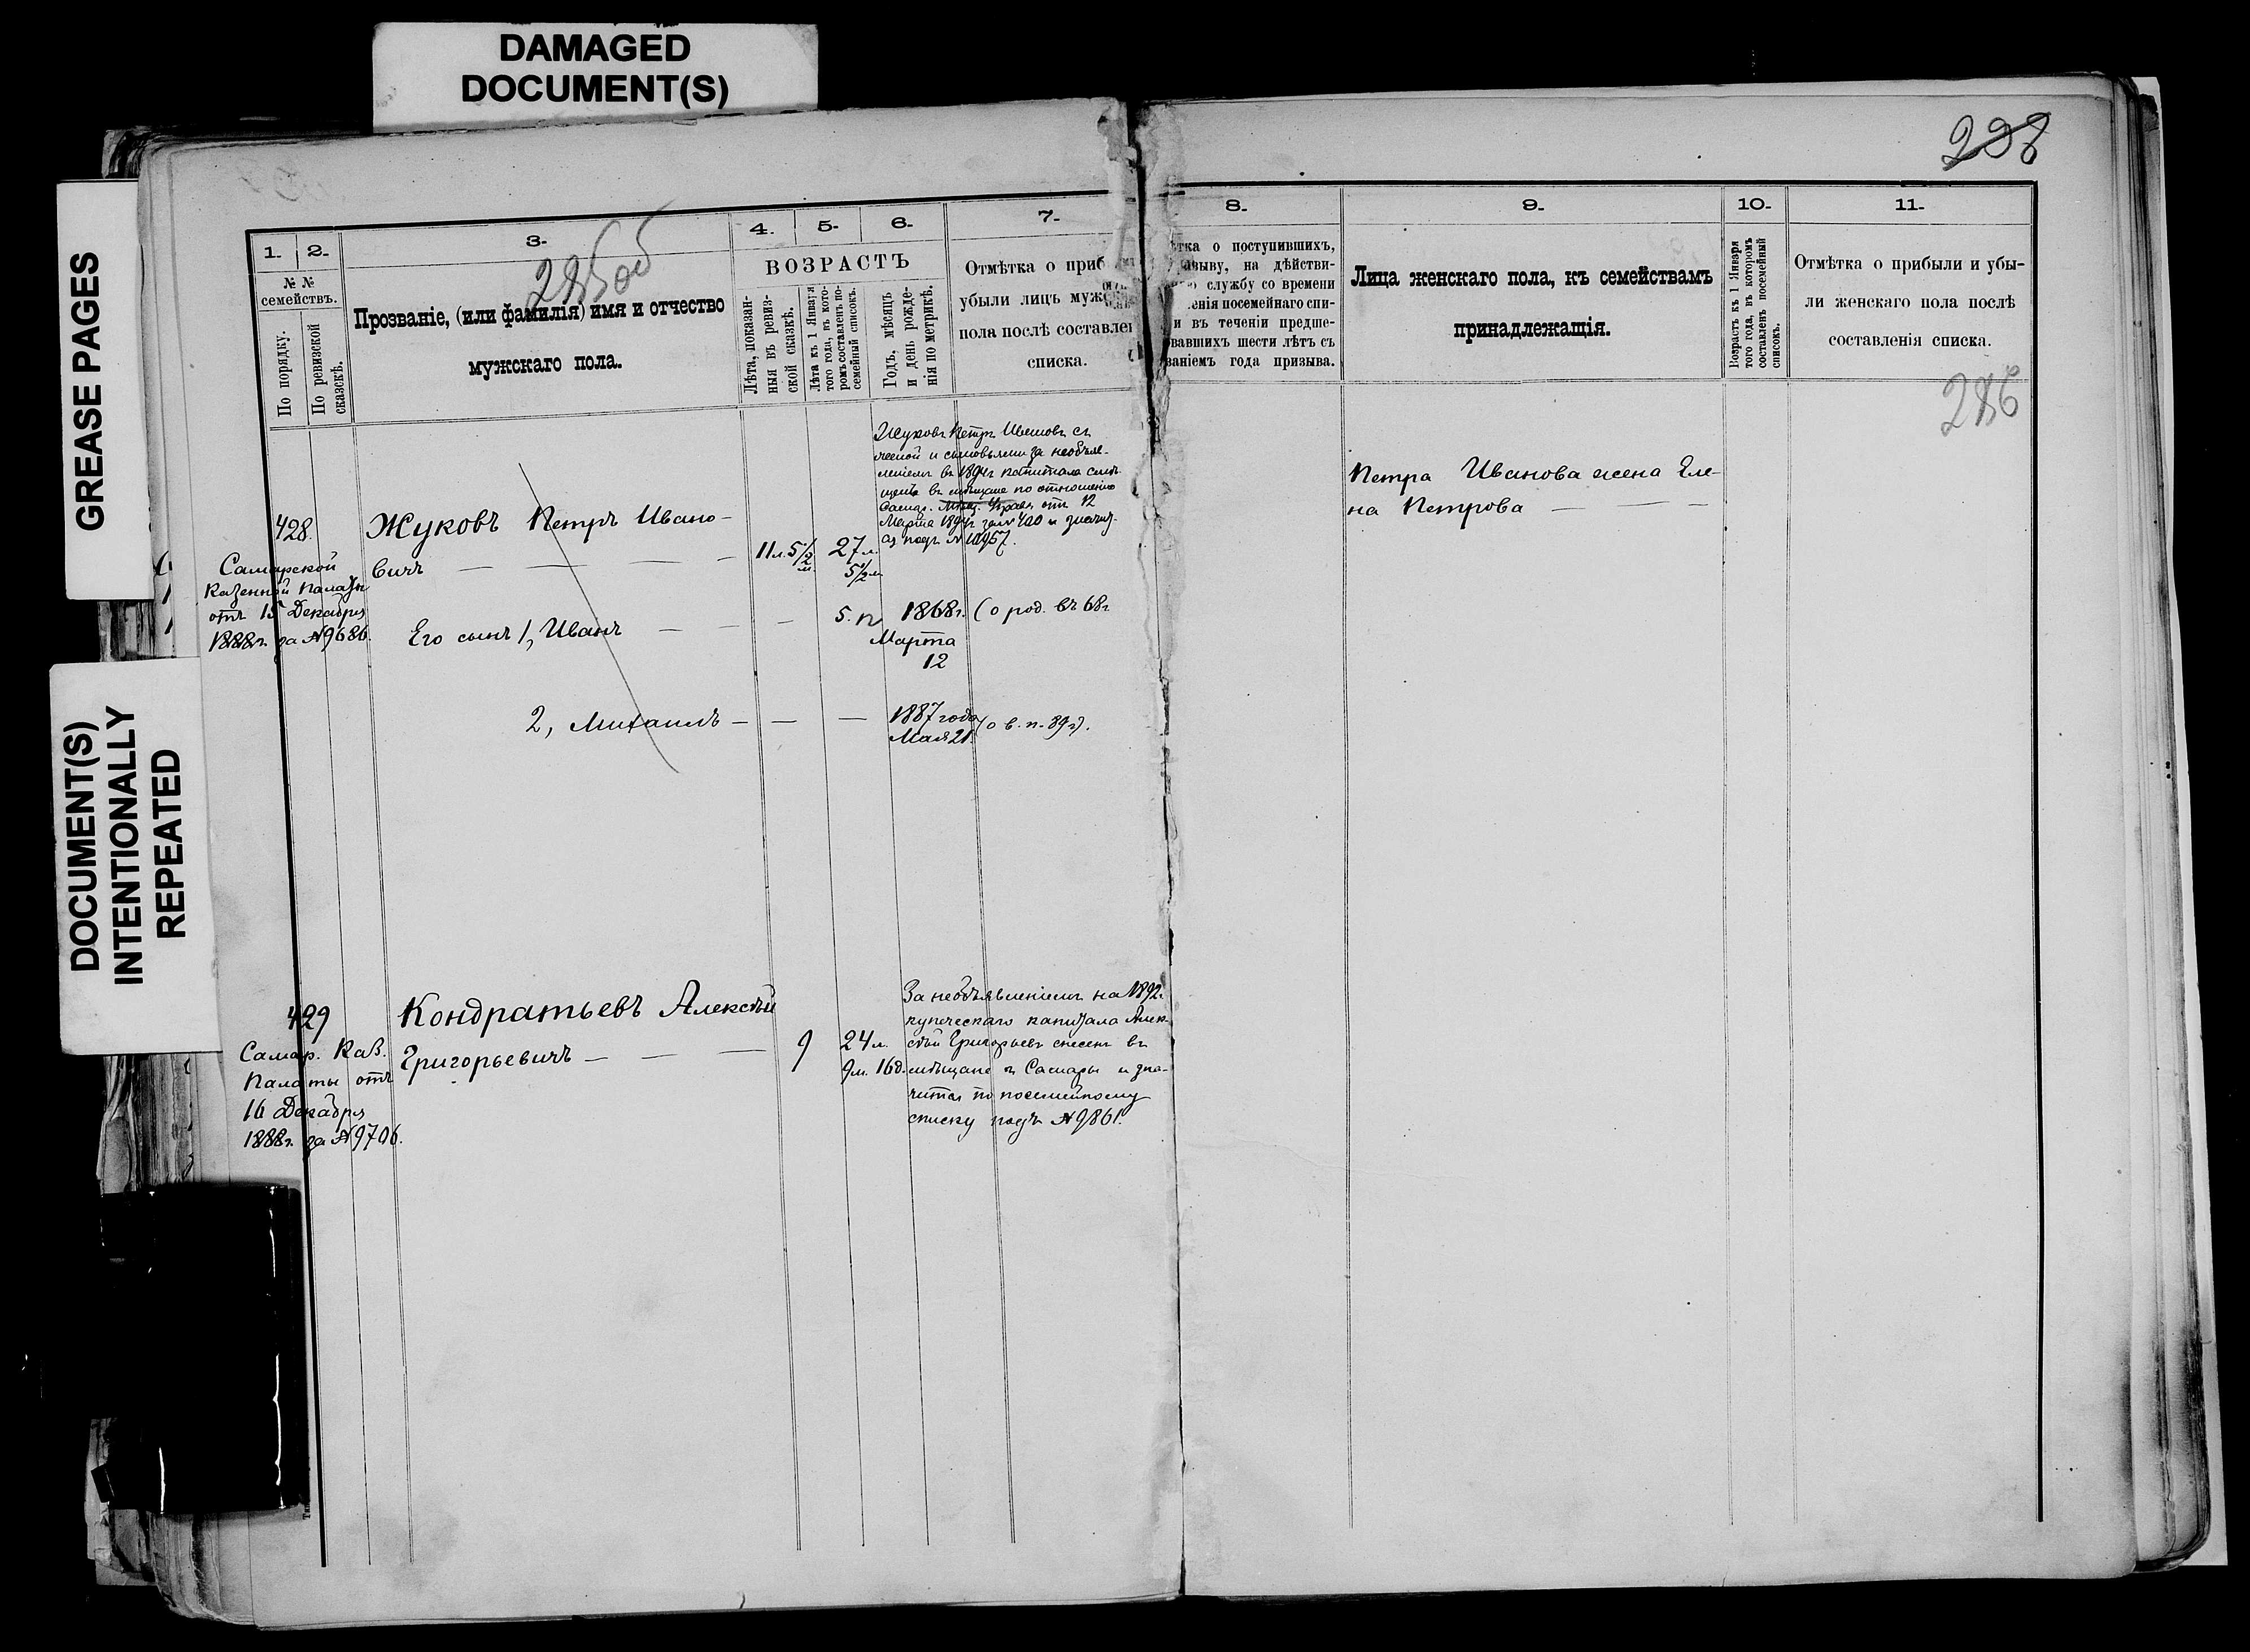 DAMAGED
DOCUMENT(S)
GREASE PAGES
DOCUMENT(S)
INTENTIONALLY
REPEATED
298
285об
1.
2.
3.
4.
5.
6.
7.
№ №
семействъ.
По порядку.
По ревизской
сказкѣ.
Прозваніе, (или фамилія) имя и отчество
мужскаго пола.
ВОЗРАСТЪ
Лѣта, показан-
ныя въ ревиз-
ской сказкѣ.
Лѣта къ 1 Января
того года, въ кото-
ромъ составленъ по-
семейный списокъ.
Годъ, мѣсяцъ
и день рожде-
нія по метрикѣ.
Отмѣтка о приб
убыли лицъ муж
пола послѣ составле
списка.
8.
9.
10.
11.
тка о поступившихъ,
зыву, на дѣйстви-
службу со времени
енія посемейнаго спи-
и въ теченіи предше-
вавшихъ шести лѣтъ съ
ваніемъ года призыва.
Лица женскаго пола, къ семействамъ
принадлежащія.
Возрастъ къ 1 Января
того года, въ которомъ
составленъ посемейный
списокъ.
Отмѣтка о прибыли и убы-
ли женскаго пола послѣ
составленія списка.
286
428.
Самарской
Казенной Палаты
отъ 15 Декабря
1888г. за №9686.
Жуковъ Петръ Ивано-
вичъ — — — —
11л.5½ м.
27л.
5½м
Жуковъ Петръ Ивановъ съ
женой и сыновьями за необъяв-
леніемъ въ 1894г капитала
въ мѣщане по отношенію
Самар. Мѣщ. Управ. отъ 12
Марта 1894г за № 400 и значит-
ся подъ № 10457.
Его сынъ 1, Иванъ — — —
5. п
1868г.
Марта
12
(о род. въ 68г
2, Михаилъ — — —
1887 года
Мая 21.
(о в. п. 89г).
Петра Иванова жена Еле-
на Петрова — — —
429
Самар. Каз.
Палаты отъ
16 Декабря
1888г. за №9706.
Кондратьевъ Алексѣй
Григорьевичъ — — —
9
24л.
9м. 16д.
За необъявленіемъ на 1892г.
купеческаго капитала Алек-
сѣй Григорьевъ снесенъ въ
мѣщане г. Самары и зна-
чится по посемейному
списку подъ №9861.